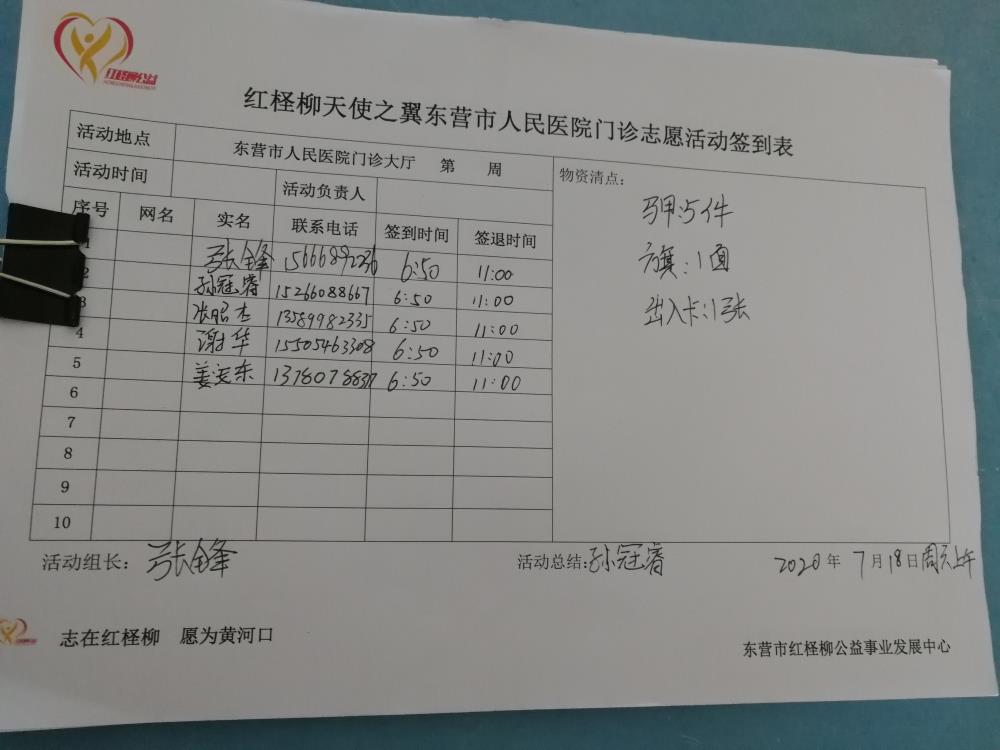 红柽柳公益
红柽柳天使之翼东营市人民医院门诊志愿活动签到表
活动地点 东营市人民医院门诊大厅 第 周 物资清点：
活动时间 活动负责人
序号 网名 实名 联系电话 签到时间 签退时间
1 张锋 15666892236 6:50 11:00
2 孙冠睿 15266088667 6:50 11:00
3 张昭杰 13589982335 6:50 11:00
4 谢华 15505463308 6:50 11:00
5 姜安东 13780788317 6:50 11:00
6
7
8
9
10
马甲:5件
旗:1面
出入卡:1张
活动组长: 张锋 活动总结:孙冠睿 2020年 7月18日周六上午
志在红柽柳 愿为黄河口
东营市红柽柳公益事业发展中心